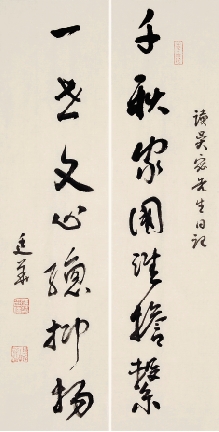 读吴宓先生日记
千秋家国谁担系
一世文心总抑扬
廷华